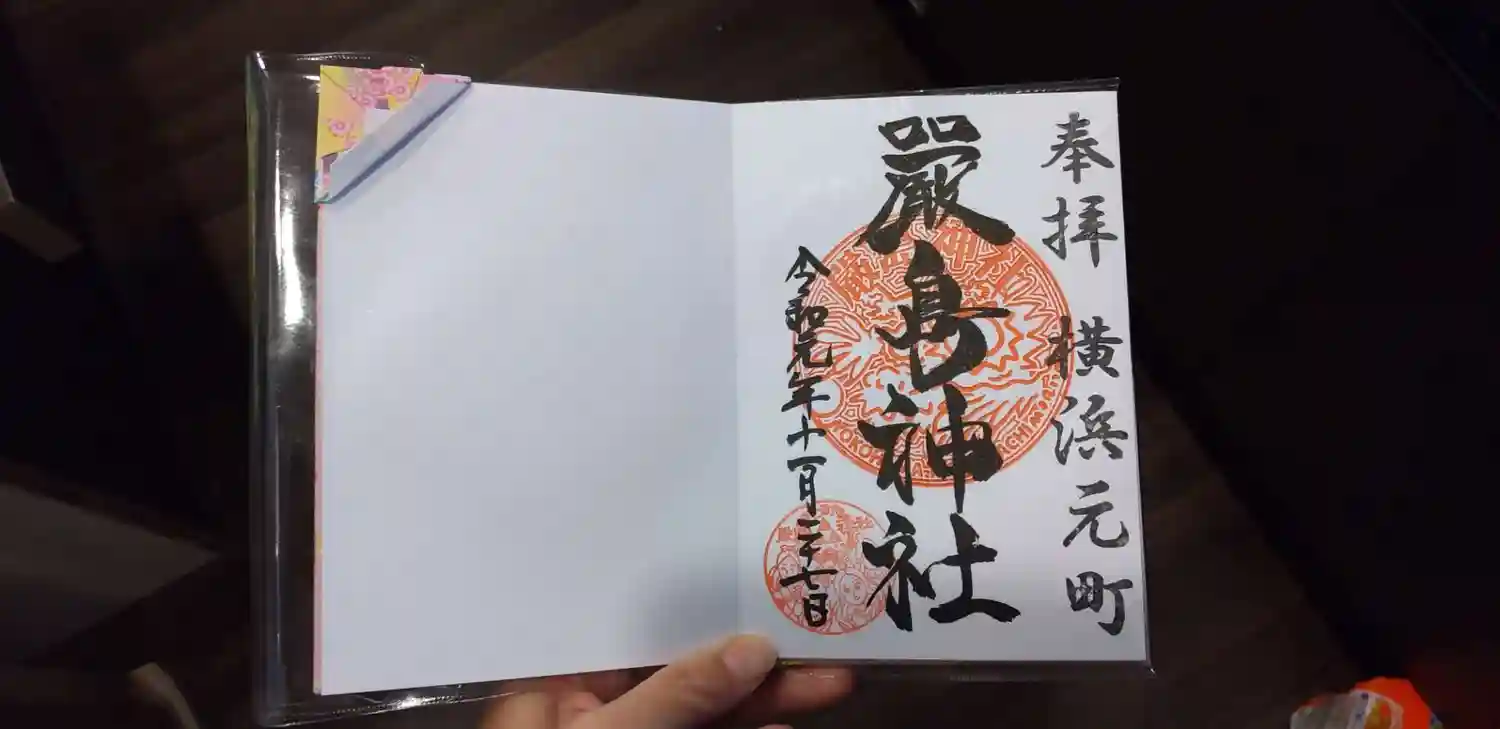 奉拝 横浜元町
厳島神社
令和元年十一月二十七日